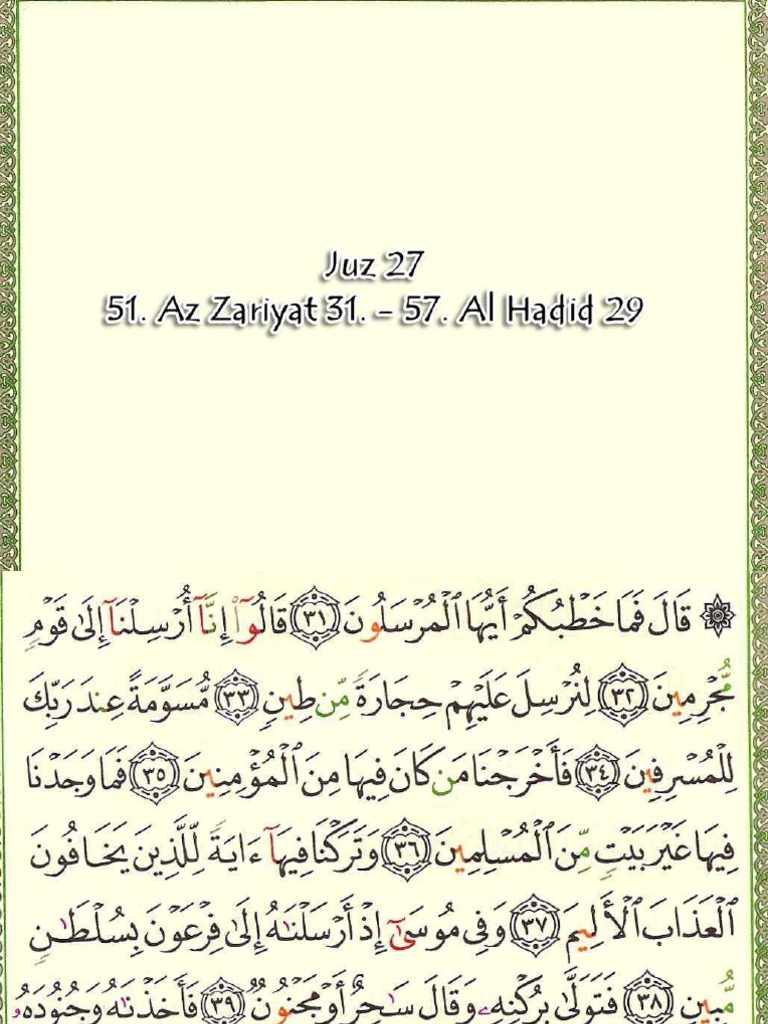 Juz 27
51. Az Zariyat 31. - 57. Al Hadid 29
۞ قَالَ فَمَا خَطْبُكُمْ أَيُّهَا ٱلْمُرْسَلُونَ ٣١ قَالُوٓا۟ إِنَّآ أُرْسِلْنَآ إِلَىٰ قَوْمٍ
مُّجْرِمِينَ ٣٢ لِنُرْسِلَ عَلَيْهِمْ حِجَارَةً مِّن طِينٍ ٣٣ مُّسَوَّمَةً عِندَ رَبِّكَ
لِلْمُسْرِفِينَ ٣٤ فَأَخْرَجْنَا مَن كَانَ فِيهَا مِنَ ٱلْمُؤْمِنِينَ ٣٥ فَمَا وَجَدْنَا
فِيهَا غَيْرَ بَيْتٍ مِّنَ ٱلْمُسْلِمِينَ ٣٦ وَتَرَكْنَا فِيهَآ ءَايَةً لِّلَّذِينَ يَخَافُونَ
ٱلْعَذَابَ ٱلْأَلِيمَ ٣٧ وَفِى مُوسَىٰٓ إِذْ أَرْسَلْنَٰهُ إِلَىٰ فِرْعَوْنَ بِسُلْطَٰنٍ
مُّبِينٍ ٣٨ فَتَوَلَّىٰ بِرُكْنِهِۦ وَقَالَ سَٰحِرٌ أَوْ مَجْنُونٌ ٣٩ فَأَخَذْنَٰهُ وَجُنُودَهُۥ